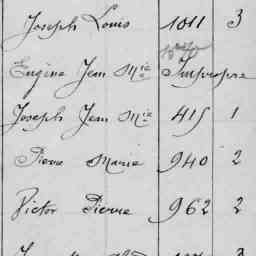 Joseph Louis 1011 3
Eugène Jean Mie Impropre
Joseph Jean Mie 415 1
Pierre Marie 940 2
Victor Pierre 962 2